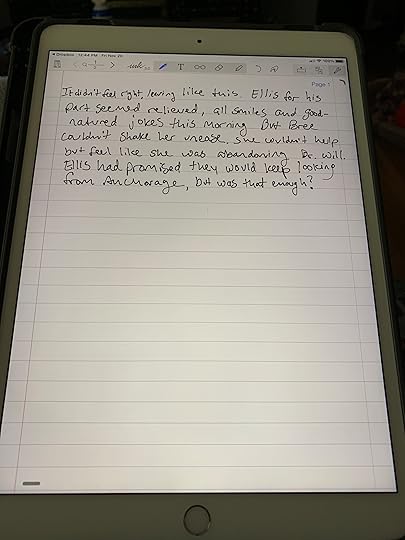 Dropbox 12:44 PM Fri Nov 20
T
Page 1
It didn't feel right, leaving like this. Ellis for his
part seemed relieved, all smiles and good-
natured jokes this morning. But Bree
couldn't shake her unease, she couldn't help
but feel like she was abandoning Dr. Will.
Ellis had promised they would keep looking
from Anchorage, but was that enough?